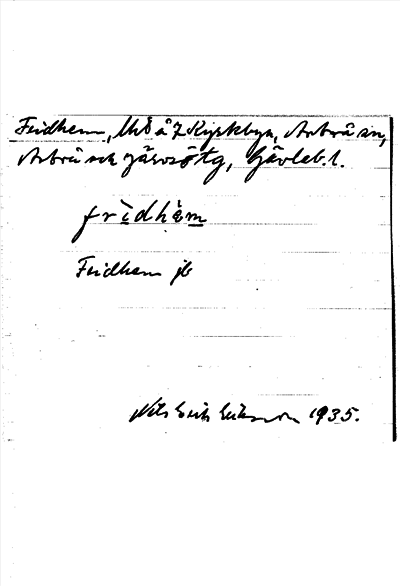 Fridhem, lhd å 7 Kyrkbyn, Arbrå sn,
Arbrå och Järvsö tg, Gävleb. l.
frìdhè̱m
Fridhem jb
Nils Erik Eriksson 1935.